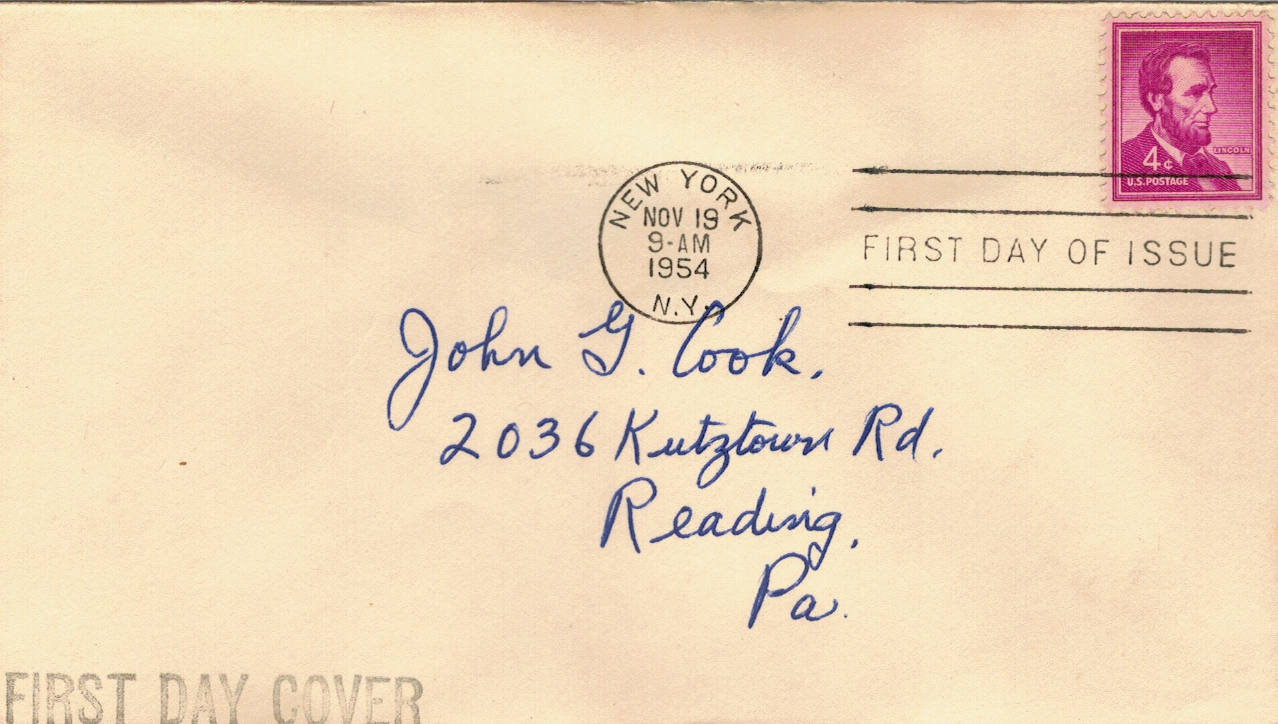 LINCOLN
4¢
U.S. POSTAGE
NEW YORK
NOV 19
9-AM
1954
N.Y.
FIRST DAY OF ISSUE
John G. Cook.
2036 Kutztown Rd.
Reading,
Pa.
FIRST DAY COVER